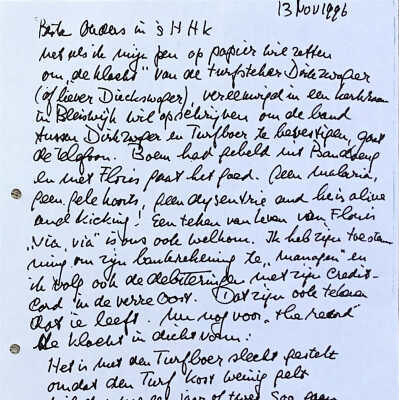 13 Nov 1996
Beste Ouders in 's HHK
net als ik mijn pen op papier wil zetten
om „de klacht" van de turfsteker Dirkzwager
(of liever Dieckswager), vereeuwigd in een kerkraam
in Bleiswijk wil opschrijven om de band
tussen Dirkzwager en Turfboer te bevestigen, gaat
de telefoon. Boem had gebeld uit Bandung
en met Floris gaat het goed. Geen malaria,
geen gele koorts, geen dysentrie and he is alive
and kicking! Een teken van leven van Floris
„via, via" is ons ook welkom. Ik heb zijn toestem
ming om zijn bankrekening te „managen" en
ik volg ook de debiteringen met zijn Credit-
card in de verre Oost. Dat zijn ook tekenen
dat ie leeft. Nu nog voor „the record"
de klacht in dichtvorm:
Het is met den Turfboer slecht gesteld
omdat den Turf kost weinig gelt
jaar of three